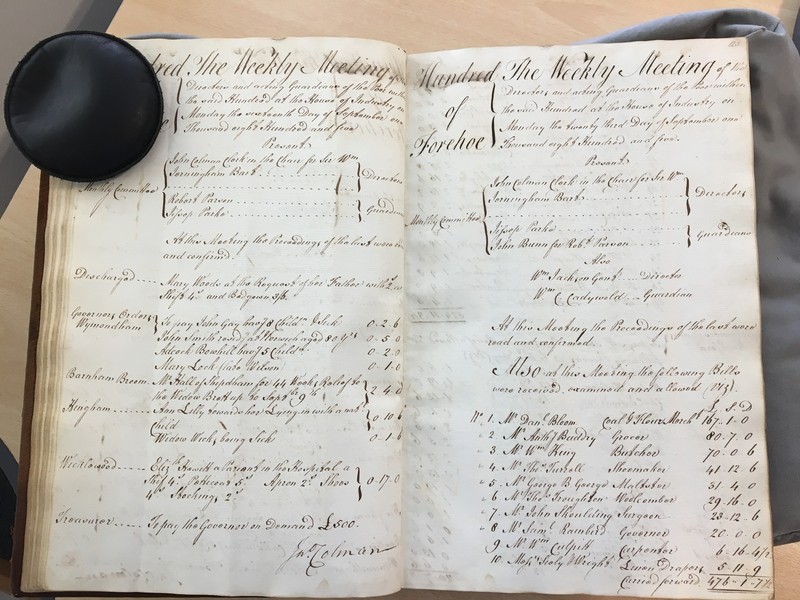 dred The Weekly Meeting of the
Directors and acting Guardians of the Poor within
the said Hundred at the House of Industry on
Monday the sixteenth Day of September one
Thousand eight Hundred and five
Present
John Colman Clerk in the Chair for Sir Wm
Jerningham Bart. Directors
Monthly Committee
Robert Parson
Jessop Parke Guardians
At this Meeting the Proceedings of the last were
and confirmed.
Discharged Mary Woods at the Request of her Father with 2
Shifts 4/. and Bedgown 3/6.
Governors Orders
Wymondham To pay John Gay havg 8 Childn & Sick 0-2-6
John Smith residg at Norwich aged 80 yrs 0-5-0
Adcock Bowhill havg 5 Childn 0-2-0
Mary Lock 0-1-0
Barnham Broom Mr Hall of Shipdham for 44 Weeks Relief to
the Widow Brett up to Septr 9th 2-4-0
Hingham Ann Lilly towards her Lying in with a
Child 0-10-6
Widow Wick being Sick 0-1-6
Wicklewood Elizth Howitt a Servant in the Hospital a
Shift 4/. Petticoat 5/. Apron 2/. Shoes
4/. Stockings 2/. 0-17-0
Treasurer To pay the Governor on Demand £500.
Jn Colman
Hundred The Weekly Meeting of the
of Directors and acting Guardians of the Poor within
Forehoe the said Hundred at the House of Industry on
Monday the twenty third Day of September one
Thousand eight Hundred and five.
Present
John Colman Clerk in the Chair for Sir Wm
Jerningham Bart. Directors
Monthly Committee
Jessop Parke
John Bunn for Robt. Parson Guardians
Also
Wm Jackson Gent. Director
Wm C Cadywold Guardian
At this Meeting the Proceedings of the last were
read and confirmed.
Also at this Meeting the following Bills
were received, examined and allowed
£. S. D
No 1. Mr Danl Bloom Coal & Flour Mercht 167-1-0
2 Mr Anthy Buddry Grocer 80-7-0
3 Mr Wm King Butcher 70-0-6
4 Mr Thos Turrell Shoemaker 41-12-6
5 Mr George B George Maltster 31-4-0
6 Mr Thos Freighton Woolcomber 29-16-0
7 Mr John Skoulding Surgeon 23-12-6
8 Mr Siml Rambird Governor 20-0-0
9 Mr Wm Culpeck Carpenter 6-16-4½
10 Messrs Sealy & Wright Linen Drapers 5-11-9
Carried forward 476-1-7½